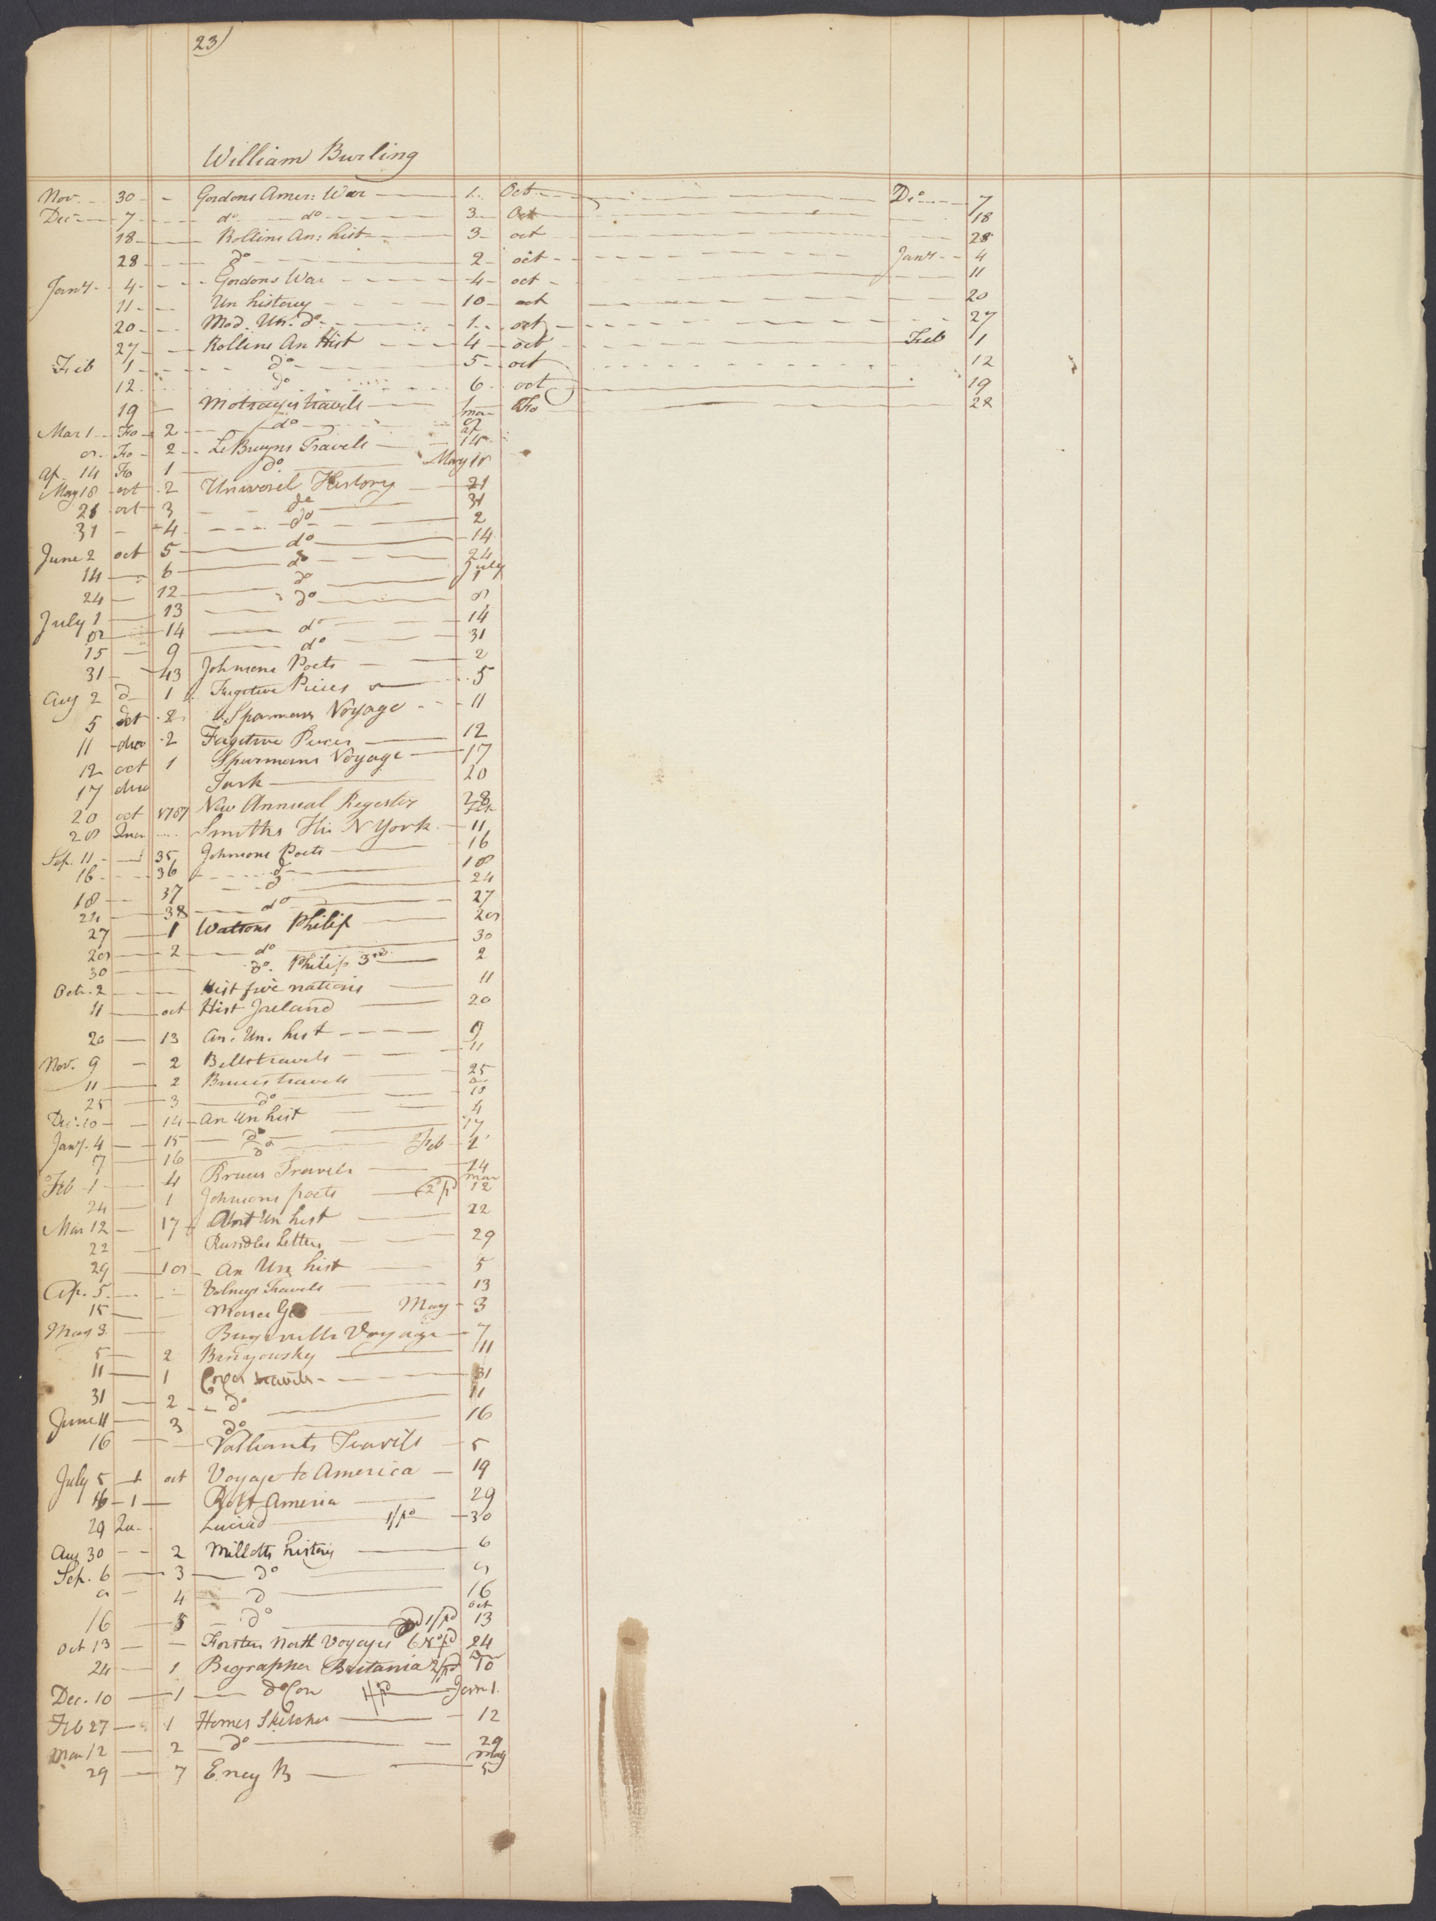 23)
William Burling
Nov. 30 Gordons Amer: War 1 Oct Do 7
Dec 7 do do 3 Oct 18
18 Rollins An: hist 3 oct 28
28 do 2 oct Jany 4
Jany 4 Gordons War 4 oct 11
11 Un history 10 oct 20
20 Mod. Un. do 1 oct 27
27 Rollins An Hist 4 oct Feb 1
Feb 1 do 5 oct 12
12 do 6 oct 19
19 Motrayes travels 1 Fo 28
Mar 1 Fo 2 do mar 8
8 Fo 2 Le Bruyns Travels ap 14
Ap. 14 Fo 1 do May 18
May 18 oct 2 Universl History 21
21 oct 3 do 31
31 4 do 2
June 2 oct 5 do 14
14 6 do 24
24 12 do July 1
July 1 13 do 8
8 14 do 14
15 9 do 31
31 43 Johnsons Poets 2
Aug 2 d 1 Fugitive Pieces 5
5 oct 2 Sparmans Voyage 11
11 duo 2 Fugitive Pieces 12
12 oct 1 Sparmans Voyage 17
17 duo Task 20
20 oct 1787 New Annual Register 28
28 Smiths His N York 11
Sep. 11 35 Johnsons Poets 16
16 36 d 18
18 37 d 24
24 38 do 27
27 1 Watsons Philip 28
28 2 do 30
30 do. Philip 3rd 2
Oct. 2 Hist five nations 11
11 oct Hist Ireland 20
20 13 An. Un. hist 9
Nov. 9 2 Bells travels 11
11 2 Bruces travels 25
25 3 do
Dec. 10 14 An Un hist 4
Jany. 4 15 do 17
7 16 do Feb 1
Feb 1 4 Bruces Travels 24
24 1 Johnsons poets 2/pd mar 12
Mar 12 17 Un hist 22
22 Rundles Letters 29
29 18 An Un hist 5
Ap. 5 Volneys Travels 13
15 Morses Geo May 3
May 3 Voyage 7
5 2 Benyousky 11
11 1 Coxes travels 31
31 2 do 11
June 11 3 do 16
16 Valliants Travels 5
July 5 1 oct Voyage to America 19
16 1 America 29
29 2u Luciad 1/pd 30
Aug 30 2 Millotts history 6
Sep. 6 3 do 8
8 4 d 16
16 5 do 1/pd oct 13
Oct 13 Forsters North Voyages pd 24
24 1 Biographia Britania 2/pd 10
Dec. 10 1 do Con 1/pd Jan 1
Feb 27 1 Homes Sketches 12
Mar 12 2 do 29
29 7 Ency B may 5